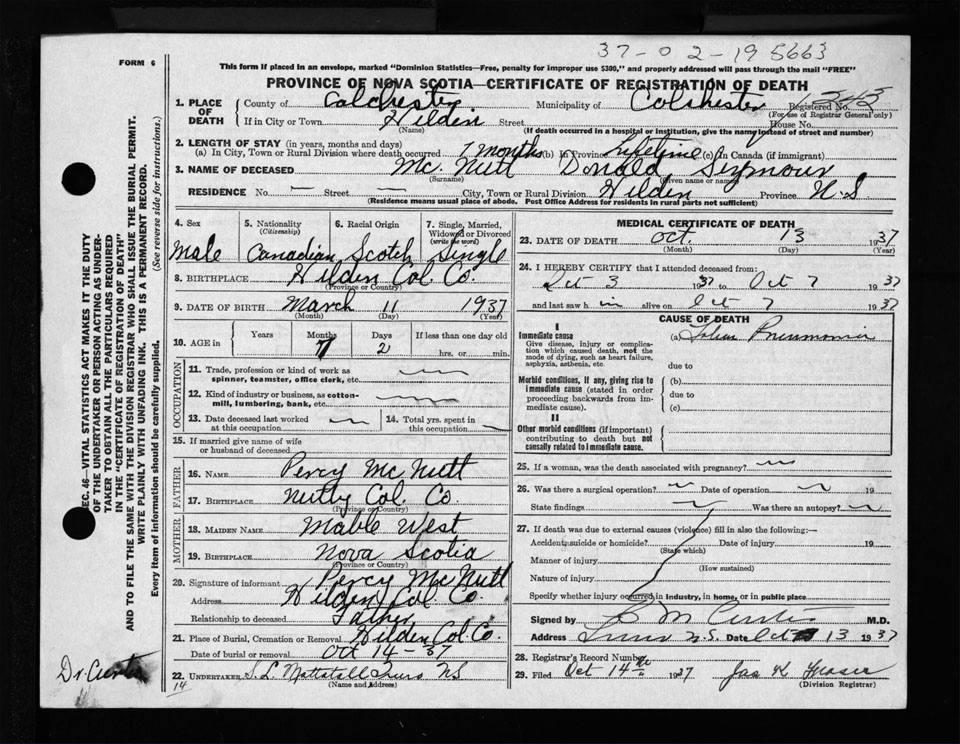 37-0 2-19 5663
FORM 6
This form if placed in an envelope, marked "Dominion Statistics—Free, penalty for improper use $300," and properly addressed will pass through the mail "FREE"
PROVINCE OF NOVA SCOTIA—CERTIFICATE OF REGISTRATION OF DEATH
1. PLACE OF DEATH County of Colchester Municipality of Colchester Registered No. 343
(For use of Registrar General only)
If in City or Town Hilden Street House No.
(Name) (If death occurred in a hospital or institution, give the name instead of street and number)
2. LENGTH OF STAY (in years, months and days)
(a) In City, Town or Rural Division where death occurred 7 months (b) In Province Lifetime (c) In Canada (if immigrant)
3. NAME OF DECEASED Mc. Nutt Donald Seymour
(Surname) (Given name or names)
RESIDENCE No. — Street — City, Town or Rural Division Hilden Province N.S
(Residence means usual place of abode. Post Office Address for residents in rural parts is not sufficient)
4. Sex Male
5. Nationality (Citizenship) Canadian
6. Racial Origin Scotch
7. Single, Married, Widowed or Divorced (write the word) Single
8. BIRTHPLACE Hilden Col. Co.
(Province or Country)
9. DATE OF BIRTH March 11 1937
(Month) (Day) (Year)
10. AGE in Years Months 7 Days 2 If less than one day old
hrs. or min.
OCCUPATION
11. Trade, profession or kind of work as spinner, teamster, office clerk, etc.
12. Kind of industry or business, as cotton-mill, lumbering, bank, etc.
13. Date deceased last worked at this occupation
14. Total yrs. spent in this occupation
15. If married give name of wife or husband of deceased
FATHER
16. NAME Percy Mc Nutt
17. BIRTHPLACE Nuttby Col. Co.
(Province or Country)
MOTHER
18. MAIDEN NAME Mable West
19. BIRTHPLACE Nova Scotia
(Province or Country)
20. Signature of informant Percy Mc Nutt
Address Hilden Col. Co.
Relationship to deceased Father
21. Place of Burial, Cremation or Removal Hilden Col. Co.
Date of burial or removal Oct 14-37
22. UNDERTAKER S.L. Mattatall Truro NS
(Name and Address)
14
MEDICAL CERTIFICATE OF DEATH
23. DATE OF DEATH Oct. 13 1937
(Month) (Day) (Year)
24. I HEREBY CERTIFY that I attended deceased from:
Oct 3 1937 to Oct 7 1937
and last saw h im alive on Oct 7 1937
CAUSE OF DEATH
I
Immediate cause (a) Lobar Pneumonia
Give disease, injury or complication which caused death, not the mode of dying, such as heart failure, asphyxia, asthenia, etc. due to
Morbid conditions, if any, giving rise to immediate cause (stated in order proceeding backwards from immediate cause). (b)
due to
(c)
II
Other morbid conditions (if important) contributing to death but not causally related to immediate cause.
25. If a woman, was the death associated with pregnancy?
26. Was there a surgical operation? Date of operation 19
State findings Was there an autopsy?
27. If death was due to external causes (violence) fill in also the following:—
Accident, suicide or homicide? Date of injury 19
(State which)
Manner of injury
(How sustained)
Nature of injury
Specify whether injury occurred in industry, in home, or in public place
Signed by C M Curtis M.D.
Address Truro N.S. Date Oct 13 1937
28. Registrar's Record Number
29. Filed Oct 14 1937 Jas K Fraser
(Division Registrar)
SEC. 46—VITAL STATISTICS ACT MAKES IT THE DUTY
OF THE UNDERTAKER OR PERSON ACTING AS UNDER-
TAKER TO OBTAIN ALL THE PARTICULARS REQUIRED
IN THE "CERTIFICATE OF REGISTRATION OF DEATH"
AND TO FILE THE SAME WITH THE DIVISION REGISTRAR WHO SHALL ISSUE THE BURIAL PERMIT.
WRITE PLAINLY WITH UNFADING INK. THIS IS A PERMANENT RECORD.
Every item of information should be carefully supplied. (See reverse side for instructions.)
Dr. Curtis